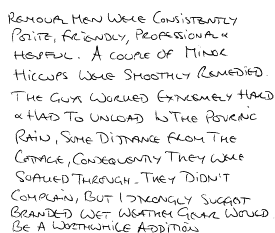 REMOVAL MEN WERE CONSISTENTLY
POLITE, FRIENDLY, PROFESSIONAL &
HELPFUL. A COUPLE OF MINOR
HICCUPS WERE SMOOTHLY REMEDIED.
THE GUYS WORKED EXTREMELY HARD
& HAD TO UNLOAD IN THE POURING
RAIN, SOME DISTANCE FROM THE
COTTAGE, CONSEQUENTLY THEY WERE
SOAKED THROUGH. THEY DIDN'T
COMPLAIN, BUT I STRONGLY SUGGEST
BRANDED WET WEATHER GEAR WOULD
BE A WORTHWHILE ADDITION